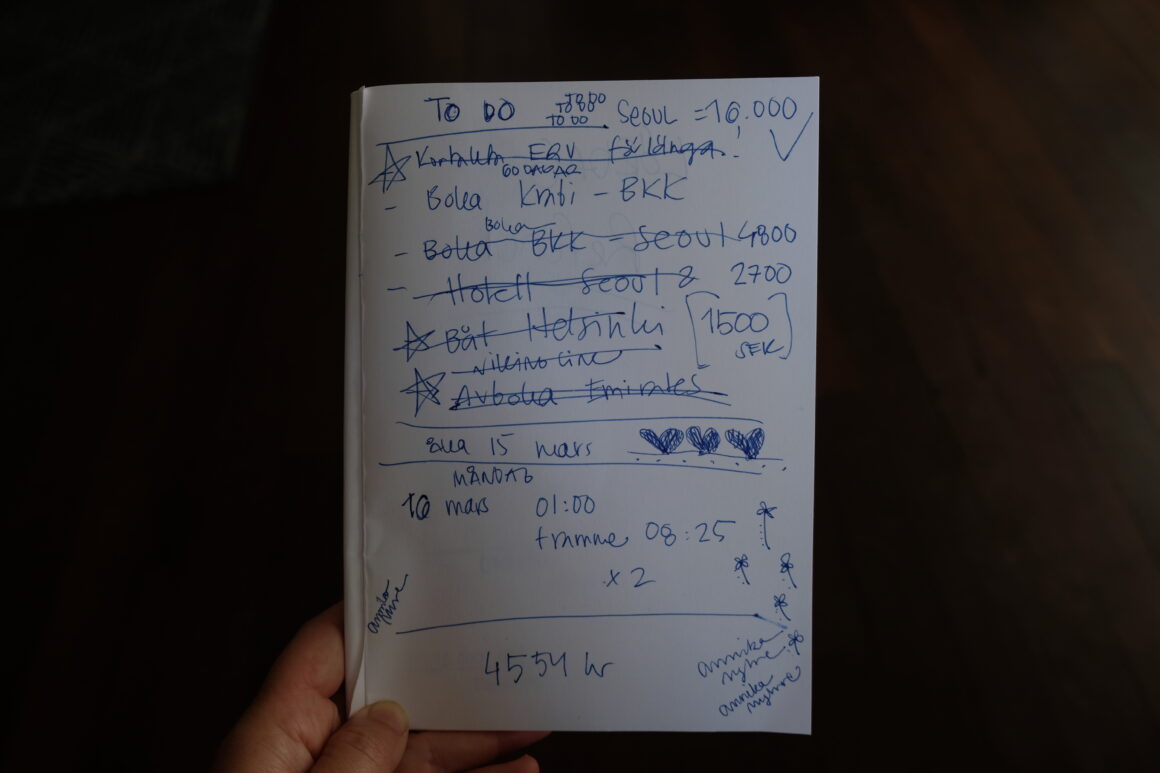 TO DO
TO DO
Seoul = 16.000
Kontakta ERV förlänga!
60 DAGAR
- Boka Krabi - BKK
Boka
- Boka BKK - Seoul 4800
- Hotell Seoul 2700
Båt Helsinki [1500
SEK]
Viking Line
Avboka Emirates
15 mars
MÅNDAG
16 mars 01:00
framme 08:25
x 2
4554 kr
annika
annika